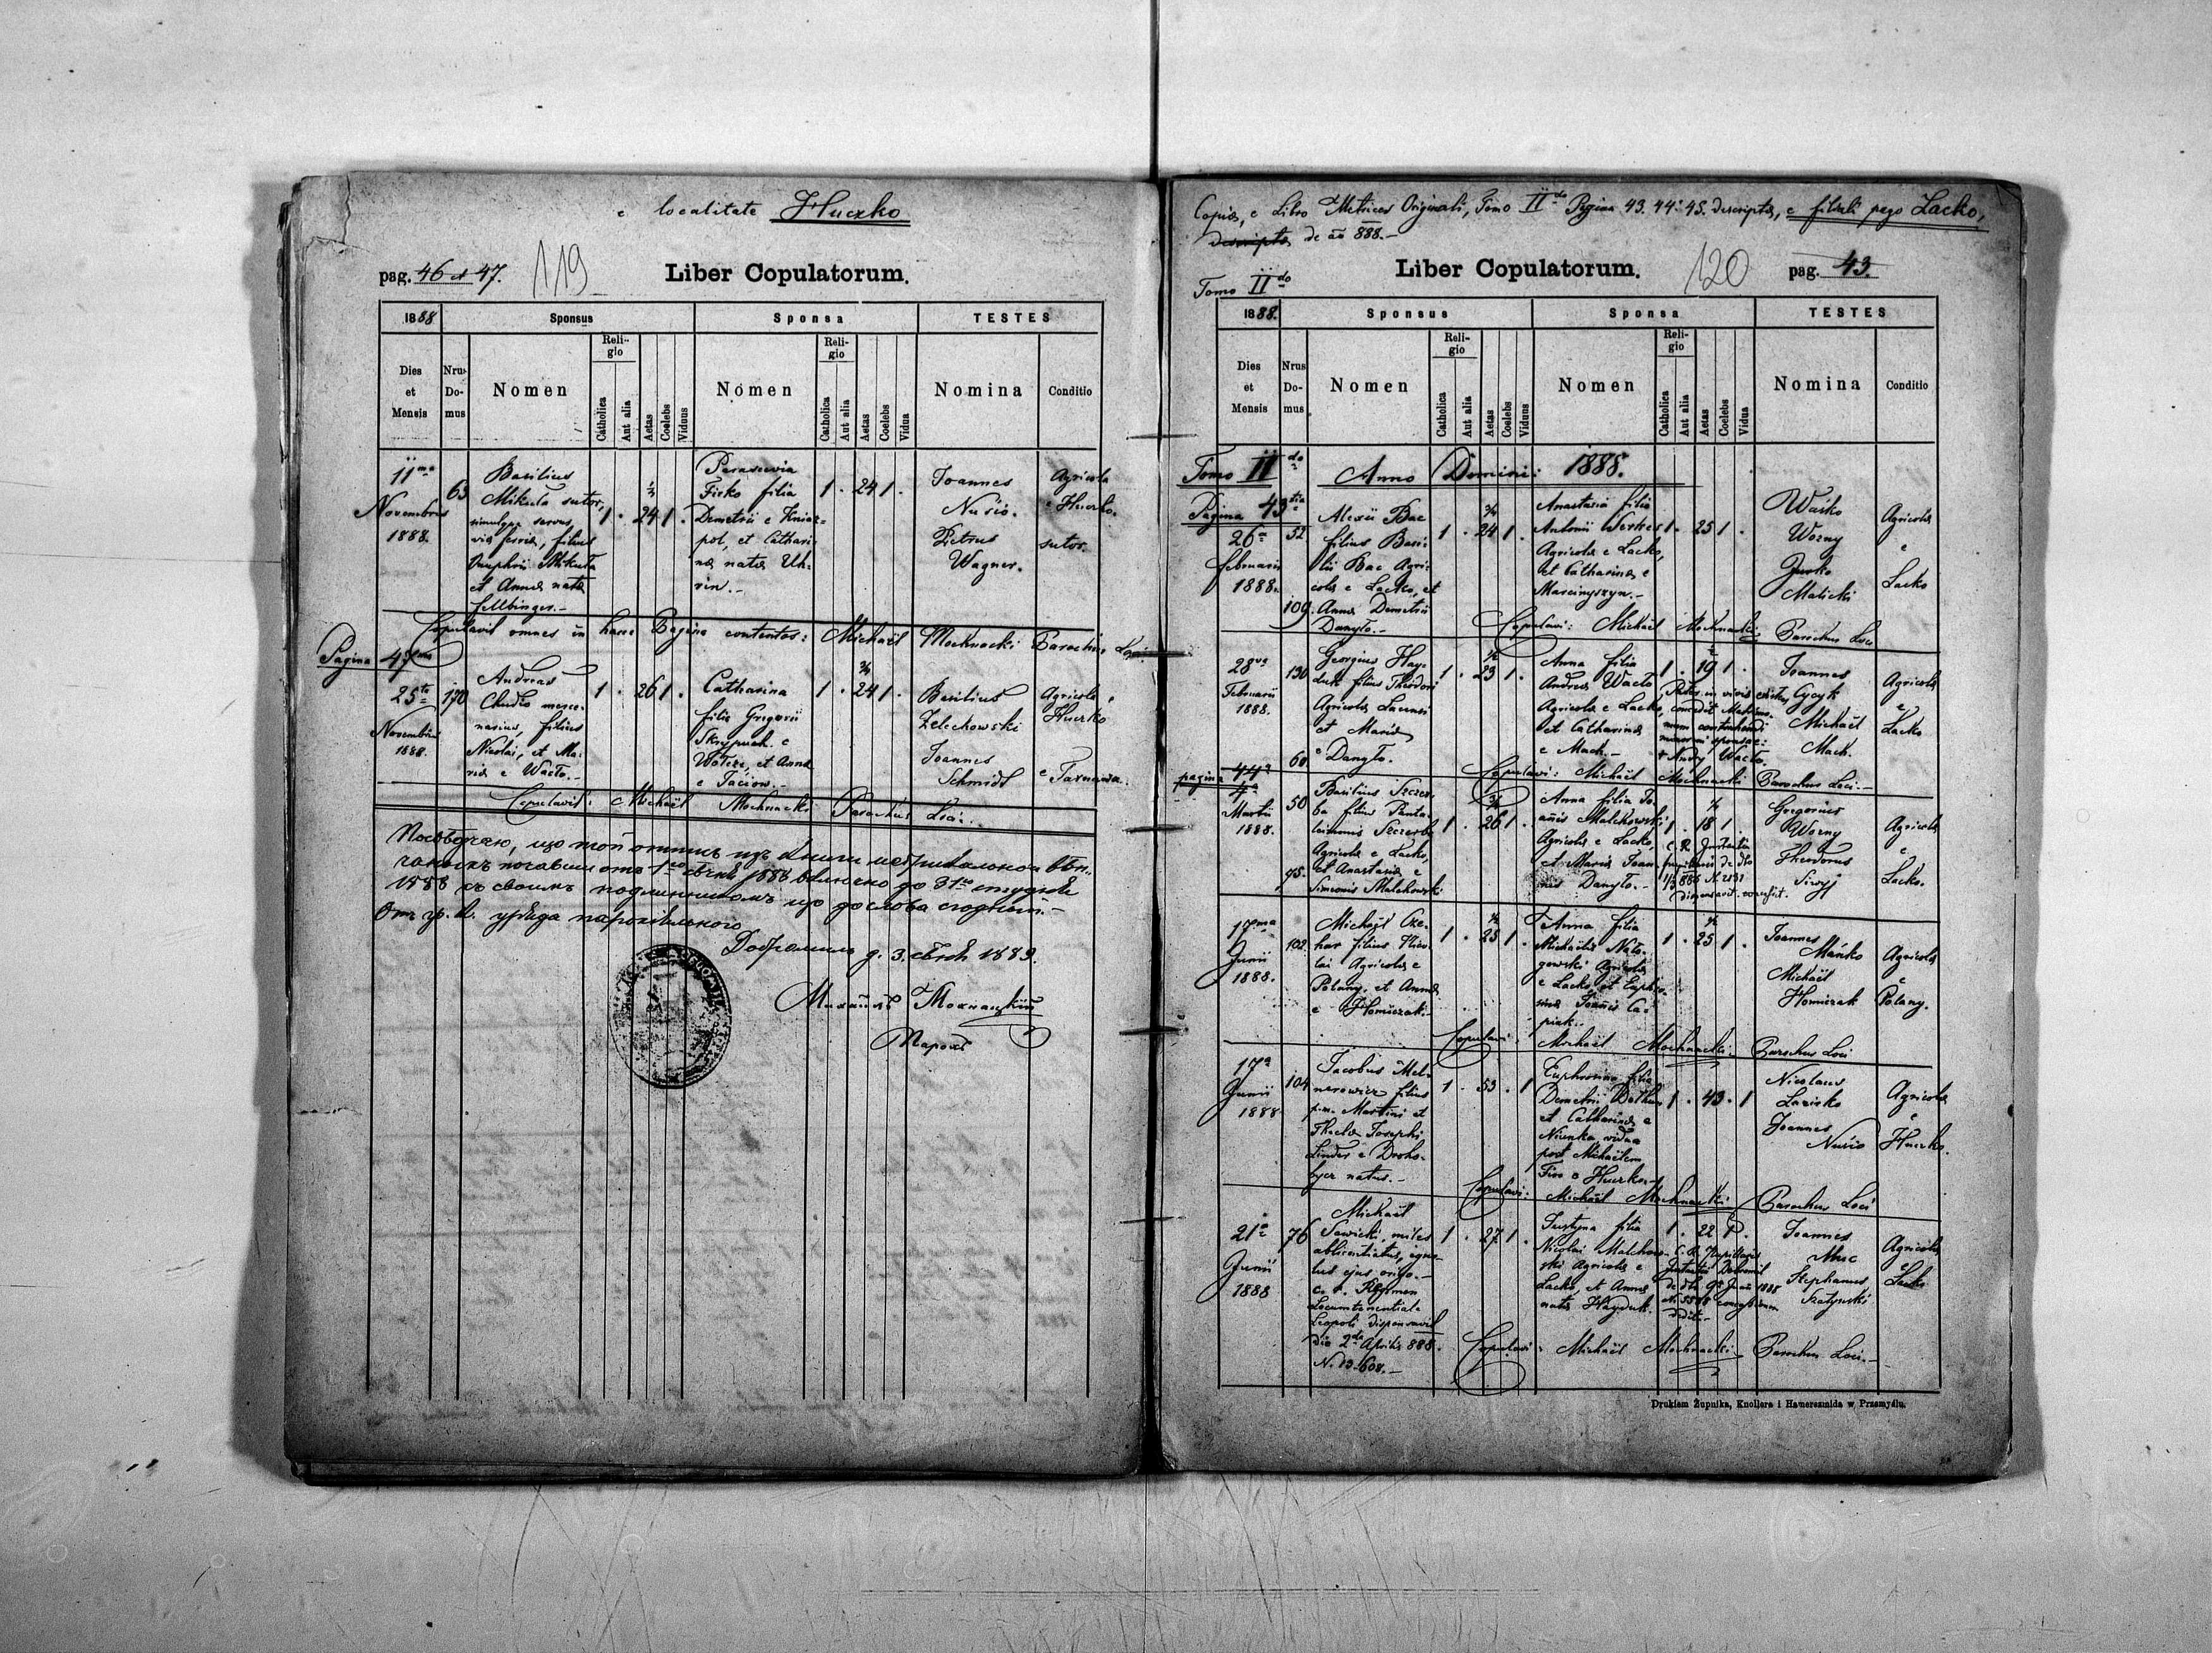 e localitate Huczko
pag. 46 et 47.
119
Liber Copulatorum.
1888
Sponsus
Sponsa
TESTES
Dies et Mensis
Nrus Domus
Nomen
Religio
Catholica
Aut alia
Aetas
Coelebs
Viduus
Nomen
Religio
Catholica
Aut alia
Aetas
Coelebs
Vidua
Nomina
Conditio
11ma
Novembris
1888.
63
Basilius
Mikuła sutor,
simulque servus
filius
Onuphrii Mikuła
et Anna nata
Fellbinger.-
1 . 24 1 .
Parascevia
Fisko filia
Demetrii e Kniaz-
pol, et Cathari-
na nata Uh-
rin.-
1 . 24 1 .
Joannes
Nusio.
Petrus
Wagner.
Agricola
e Huczko.
sutor.
Copulavit omnes in hanc Pagina contentos: Michaël Mochnacki Parochus Loci
Pagina 47ma
25ta
Novembris
1888.
170
Andreas
Chudio merce-
narius, filius
Nicolai, et Ma-
ria e Wacło.-
1 . 26 1 .
Catharina
filia Gregorii
Skrypuch e
Wołcze, et Anna
e Jaciow.-
1 . 24 1 .
Basilius
Zelechowski
Joannes
Schmidt
Agricola,
Huczko
e Tarnawa.
Copulavit: Michaël Mochnacki Parochus Loci.
Посвѣдчаю, що той отпись изъ книги метрикальнои вѣн-
чаныхъ почавши отъ 1го сѣчня 1888 включно до 31го студня
1888 съ своимъ подлинникомъ що до слова сгодный.-
Отъ гр. к. уряда парохіяльного
Добромиль д. 3. сѣчня 1889.
Михаилъ Мохнацкій
Парохъ
Copia, e Libro Metrices Originali, Tomo IIdo Pagina 43. 44. 45. descripta, e filiali pago Lacko,
descripta de aõ 888.-
Tomo IIdo
Liber Copulatorum.
120
pag. 43.
1888.
Sponsus
Sponsa
TESTES
Dies et Mensis
Nrus Domus
Nomen
Religio
Catholica
Aut alia
Aetas
Coelebs
Viduus
Nomen
Religio
Catholica
Aut alia
Aetas
Coelebs
Vidua
Nomina
Conditio
Tomo IIdo
Anno Domini: 1888.
Pagina 43tia
26a
februarii
1888.
52
109.
Alexii Bac
filius Basi-
lii Bac Agri-
cola e Lacko, et
Anna Demetrii
Danyło.-
1 . 24 1 .
Anastasia filia
Antonii Werkes
Agricola e Lacko,
et Catharina e
Marcinyszyn.-
1 . 25 1 .
Waśko
Worny
Jurko
Malicki
Agricola
e
Lacko
Copulavi: Michaël Mochnacki Parochus Loci
28va
Februarii
1888.
130
60.
Georgius Hay-
duk filius Theodori
Agricola
et Maria
e Danyło.
1 . 23 1 .
Anna filia
Andrea Wacło
Agricola e Lacko,
et Catharina
e Mach.-
1 . 19 1 .
Joannes
Gocyk
Michaël
Mach.
Agricola
e
Lacko
Copulavi: Michaël Mochnacki Parochus Loci.-
pagina 44a
4a
Martii
1888.
50
95.
Basilius Szczer-
ba filius Panta-
leimonis Szczerba
Agricola e Lacko,
et Anastasia e
Simeonis Malchowski
1 . 26 1 .
Anna filia Jo-
annis Malchowski
Agricola e Lacko,
et Maria Joan-
nis Danyło.-
1 . 18 1 .
Gregorius
Worny
Theodorus
Siryj
Agricola
e
Lacko.
17ma
Junii
1888.
102.
Michaël Cze-
har filius Nico-
lai Agricola e
Polany, et Anna
e Homiczak.-
1 . 25 1 .
Anna filia
Michaëlis Nało-
gowski Agricola
e Lacko et Euphro-
sina Joannis Ca-
piak.-
1 . 25 1 .
Joannes
Mańko
Michaël
Homiczak
Agricola
e
Polany.
Copulavi: Michaël Mochnacki. Parochus Loci
17a
Junii
1888
104
Jacobus Mel-
narowicz filius
p.m. Martini et
Thecla Josephi
Linder e Droho-
bycz natus.-
1 . 53 . 1
Euphrosina filia
Demetrii Bothun
et Catharina e
Nienka, vidua
post Michaëlem
Fico e Huczko.-
1 . 43 . 1
Nicolaus
Lazirko
Joannes
Nusio
Agricola
e
Huczko.
Copulavi: Michaël Mochnacki Parochus Loci
21a
Junii
1888
76
Michaël
Sawicki, miles
e. r. Regimen
Locumtenentiale
Leopoli dispensavit
die 2da Aprilis 888.
N. 19.608.-
1 . 27 1 .
Justyna filia
Nicolai Malchow-
ski Agricola e
Lacko, et Anna
nata Hayduk.
1 . 22 1 .
Joannes
Muc
Stephanus
Szatynski
Agricola
e
Lacko
Copulavi: Michaël Mochnacki Parochus Loci.-
Drukiem Żupnika, Knollera i Hamerszmida w Przemyślu.